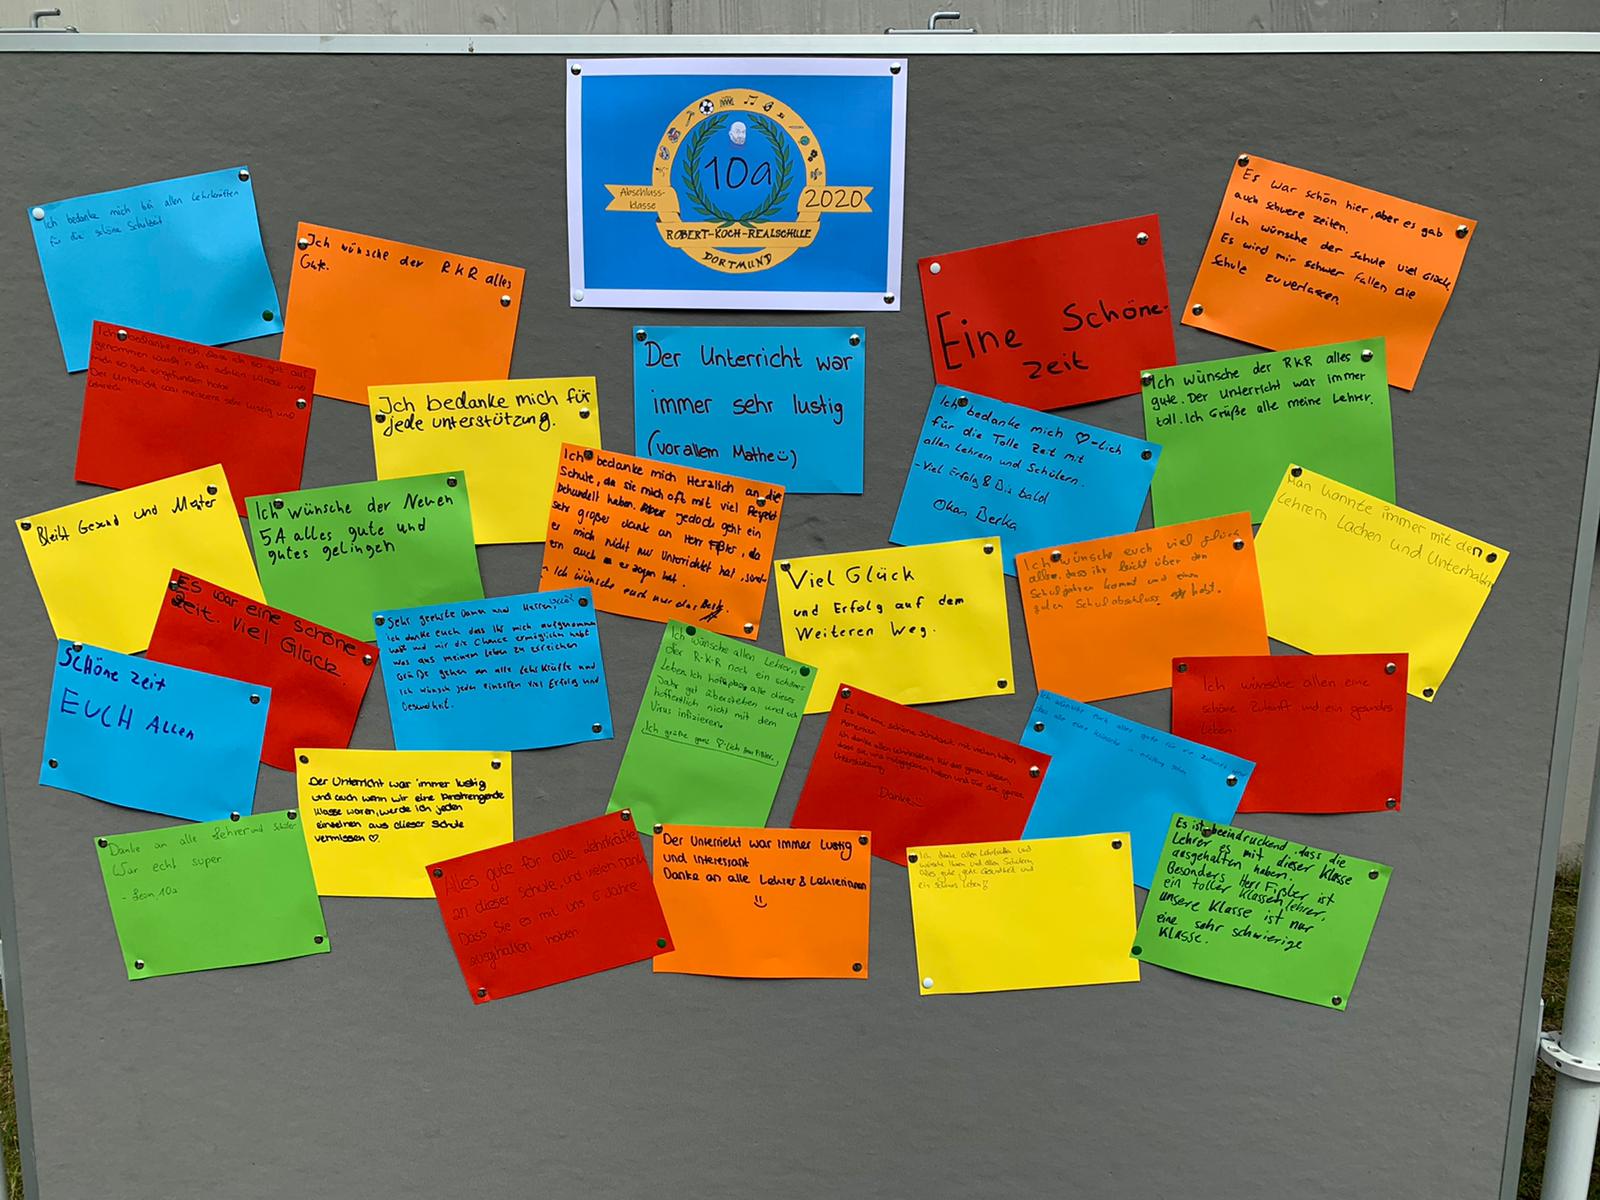 10a
Abschluss-
klasse
2020
ROBERT-KOCH-REALSCHULE
DORTMUND
Ich bedanke mich bei allen Lehrkräften
für die schöne Schulzeit
Ich wünsche der RKR alles
Gute.
Eine Schöne
zeit
Es war schön hier, aber es gab
auch schwere zeiten.
Ich wünsche der Schule viel Glück.
Es wird mir schwer fallen die
Schule zu verlassen.
Ich bedanke mich, dass ich so gut auf-
genommen wurde in der achten Klasse und
mich so gut eingefunden habe.
Der Unterricht war meistens sehr lustig und
Ich bedanke mich für
jede unterstützung.
Der Unterricht war
immer sehr lustig
(vorallem Mathe)
Ich bedanke mich ♡-lich
für die Tolle Zeit mit
allen Lehrern und Schülern.
-Viel Erfolg & Bis bald
Ich wünsche der RKR alles
gute. Der Unterricht war immer
toll. Ich Grüße alle meine Lehrer.
Bleibt Gesund und Munter
Ich wünsche der Neuen
5A alles gute und
gutes gelingen
Ich bedanke mich Herzlich an die
Schule, da sie mich oft mit viel Respekt
behandelt haben. jedoch geht ein
sehr großer dank an Herr Fißler, da
er mich nicht nur Unterrichtet hat, sond-
ern auch erzogen hat.
Ich wünsche euch nur das Beste.
Viel Glück
und Erfolg auf dem
Weiteren Weg.
Ich wünsche euch viel glück
allen, dass ihr leicht über den
Schuljahren kommt und einen
guten Schulabschluss habt.
Man konnte immer mit den
Lehrern Lachen und Unterhalten
Es war eine schöne
Zeit. Viel Glück.
Sehr geehrte Damen und Herren,
ich danke euch das Ihr mich aufgenommen
habt und mir die Chance ermöglicht habt
was aus meinem Leben zu erreichen
Grüße gehen an alle Lehrkräfte und
Ich wünsch jeden einzelnen viel Erfolg und
Gesundheit.
Schöne zeit
EUCH Allen
Ich wünsche allen Lehrern
der R-K-R noch ein schönes
Leben. Ich hoffe, dass alle dieses
Jahr gut überstehen und sich
hoffentlich nicht mit dem
Virus infizieren.
Ich grüße ganz ♡-lich Herr Fißler.
Es war eine schöne Schulzeit mit vielen tollen
Momenten.
Ich danke allen Lehrkräften für das ganze Wissen,
dass sie uns mitgegeben haben und für die ganze
Unterstützung.
Danke
Ich wünsche allen eine
schöne Zukunft und ein gesundes
Leben.
Der Unterricht war immer lustig
und auch wenn wir eine Anstrengende
Klasse waren, werde ich jeden
einzelnen aus dieser Schule
vermissen ♡.
Danke an alle Lehrer und Schüler
War echt super
- Leon, 10a
Alles gute für alle Lehrkräfte
an dieser Schule, und vielen Dank
Dass Sie es mit uns 6 Jahre
ausgehalten haben
Der Unterricht war immer lustig
und interessant
Danke an alle Lehrer & Lehrerinnen
Ich danke allen Lehrkräften und
wünsche Ihnen und allen Schülern
alles gute, gute Gesundheit und
ein schönes Leben!
Es ist beeindruckend, dass die
Lehrer es mit dieser Klasse
ausgehalten haben.
Besonders Herr Fißler ist
ein toller Klassenlehrer,
unsere Klasse ist nur
eine sehr schwierige
Klasse.